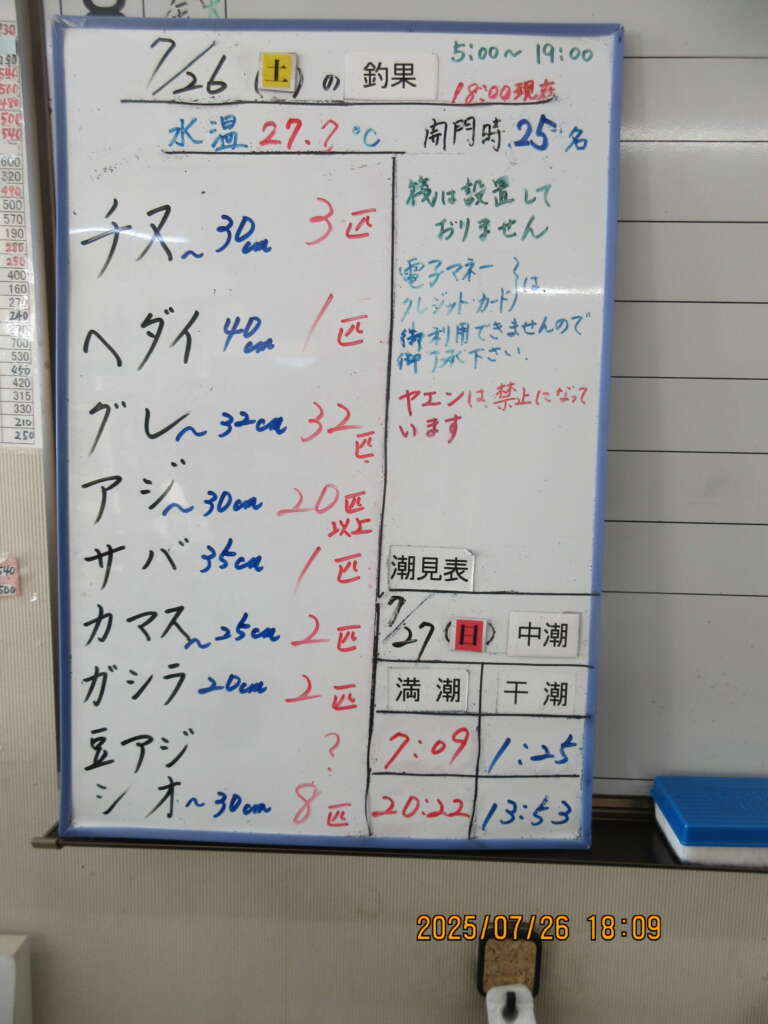 7/26(土)の釣果
5:00～19:00
18:00現在
水温 27.7℃ 開門時 25名
チヌ ～30cm 3匹
ヘダイ 40cm 1匹
グレ ～32cm 32匹
アジ ～30cm 20匹以上
サバ 35cm 1匹
カマス ～25cm 2匹
ガシラ 20cm 2匹
豆アジ ?
シオ ～30cm 8匹
筏は設置して
おりません
電子マネー
クレジット・カード は
御利用できませんので
御了承下さい.
ヤエンは禁止になって
います
潮見表
7/27(日) 中潮
満潮 干潮
7:09 1:25
20:22 13:53
2025/07/26 18:09